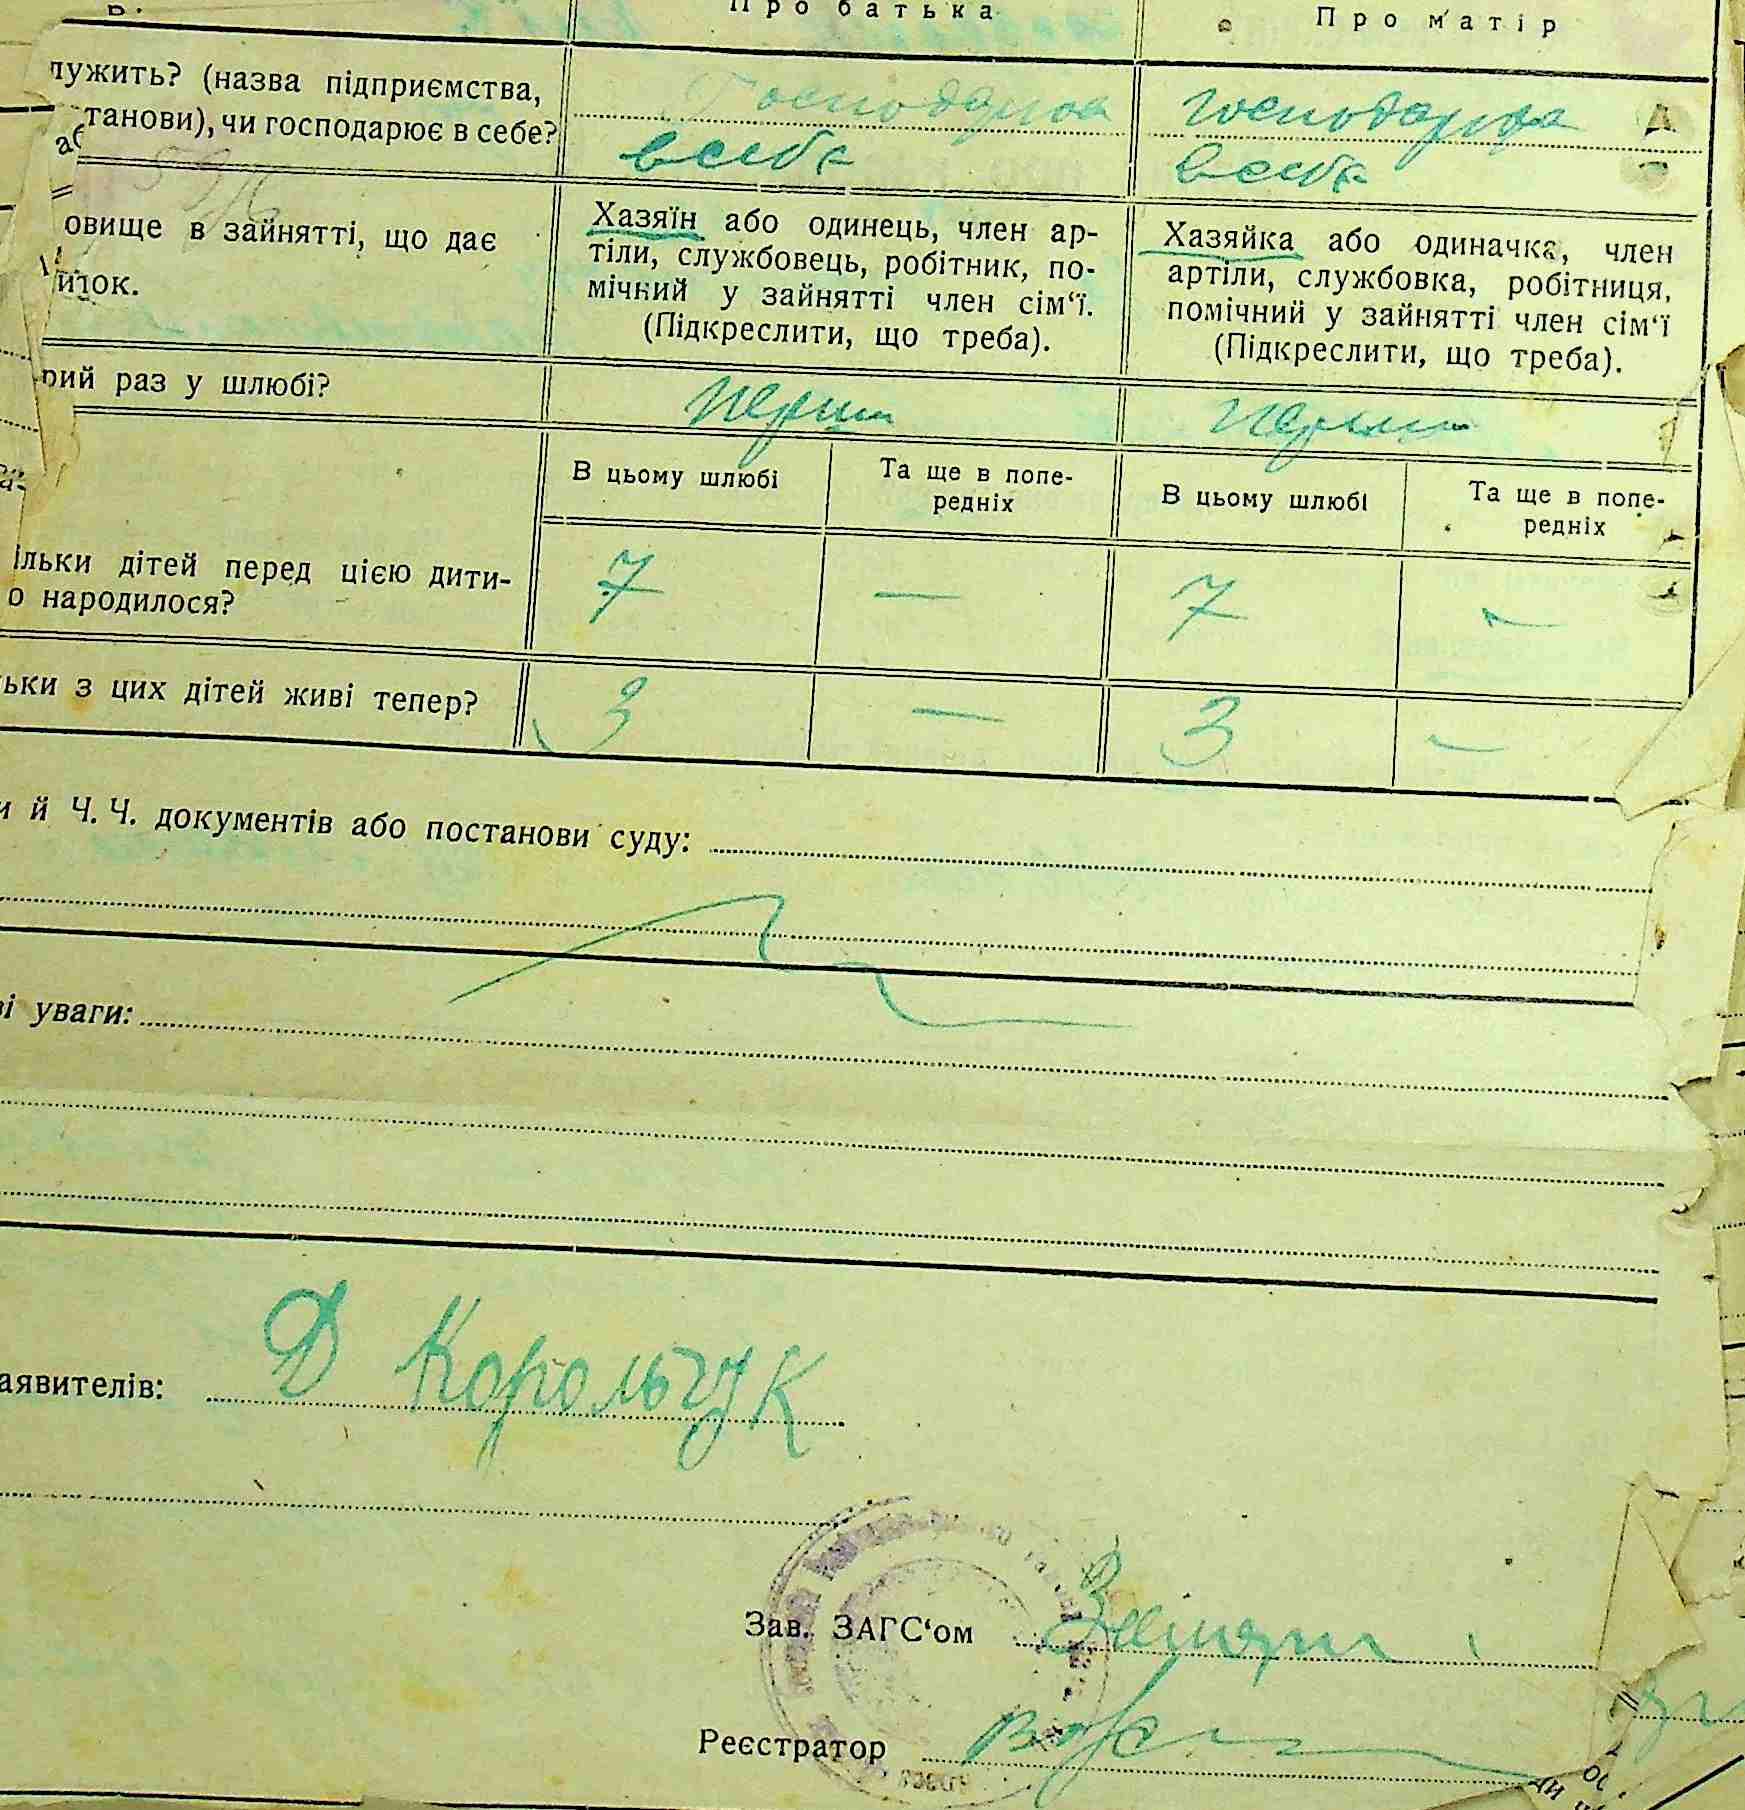 Про батька Про матір
лужить? (назва підприємства, Господарює господарює
танови), чи господарює в себе? в себе в себе
овище в зайнятті, що дає
иток.
Хазяїн або одинець, член ар-
тіли, службовець, робітник, по-
мічний у зайнятті член сім‘ї.
(Підкреслити, що треба).
Хазяйка або одиначка, член
артіли, службовка, робітниця,
помічний у зайнятті член сім‘ї
(Підкреслити, що треба).
рий раз у шлюбі?
В цьому шлюбі
Та ще в попе-
редніх
В цьому шлюбі
Та ще в попе-
редніх
ільки дітей перед цією дити- 7 — 7 -
о народилося?
ьки з цих дітей живі тепер? 3 — 3 -
и й Ч. Ч. документів або постанови суду:
ві уваги:
аявителів: Д Корольчук
Зав. ЗАГС‘ом
Реєстратор